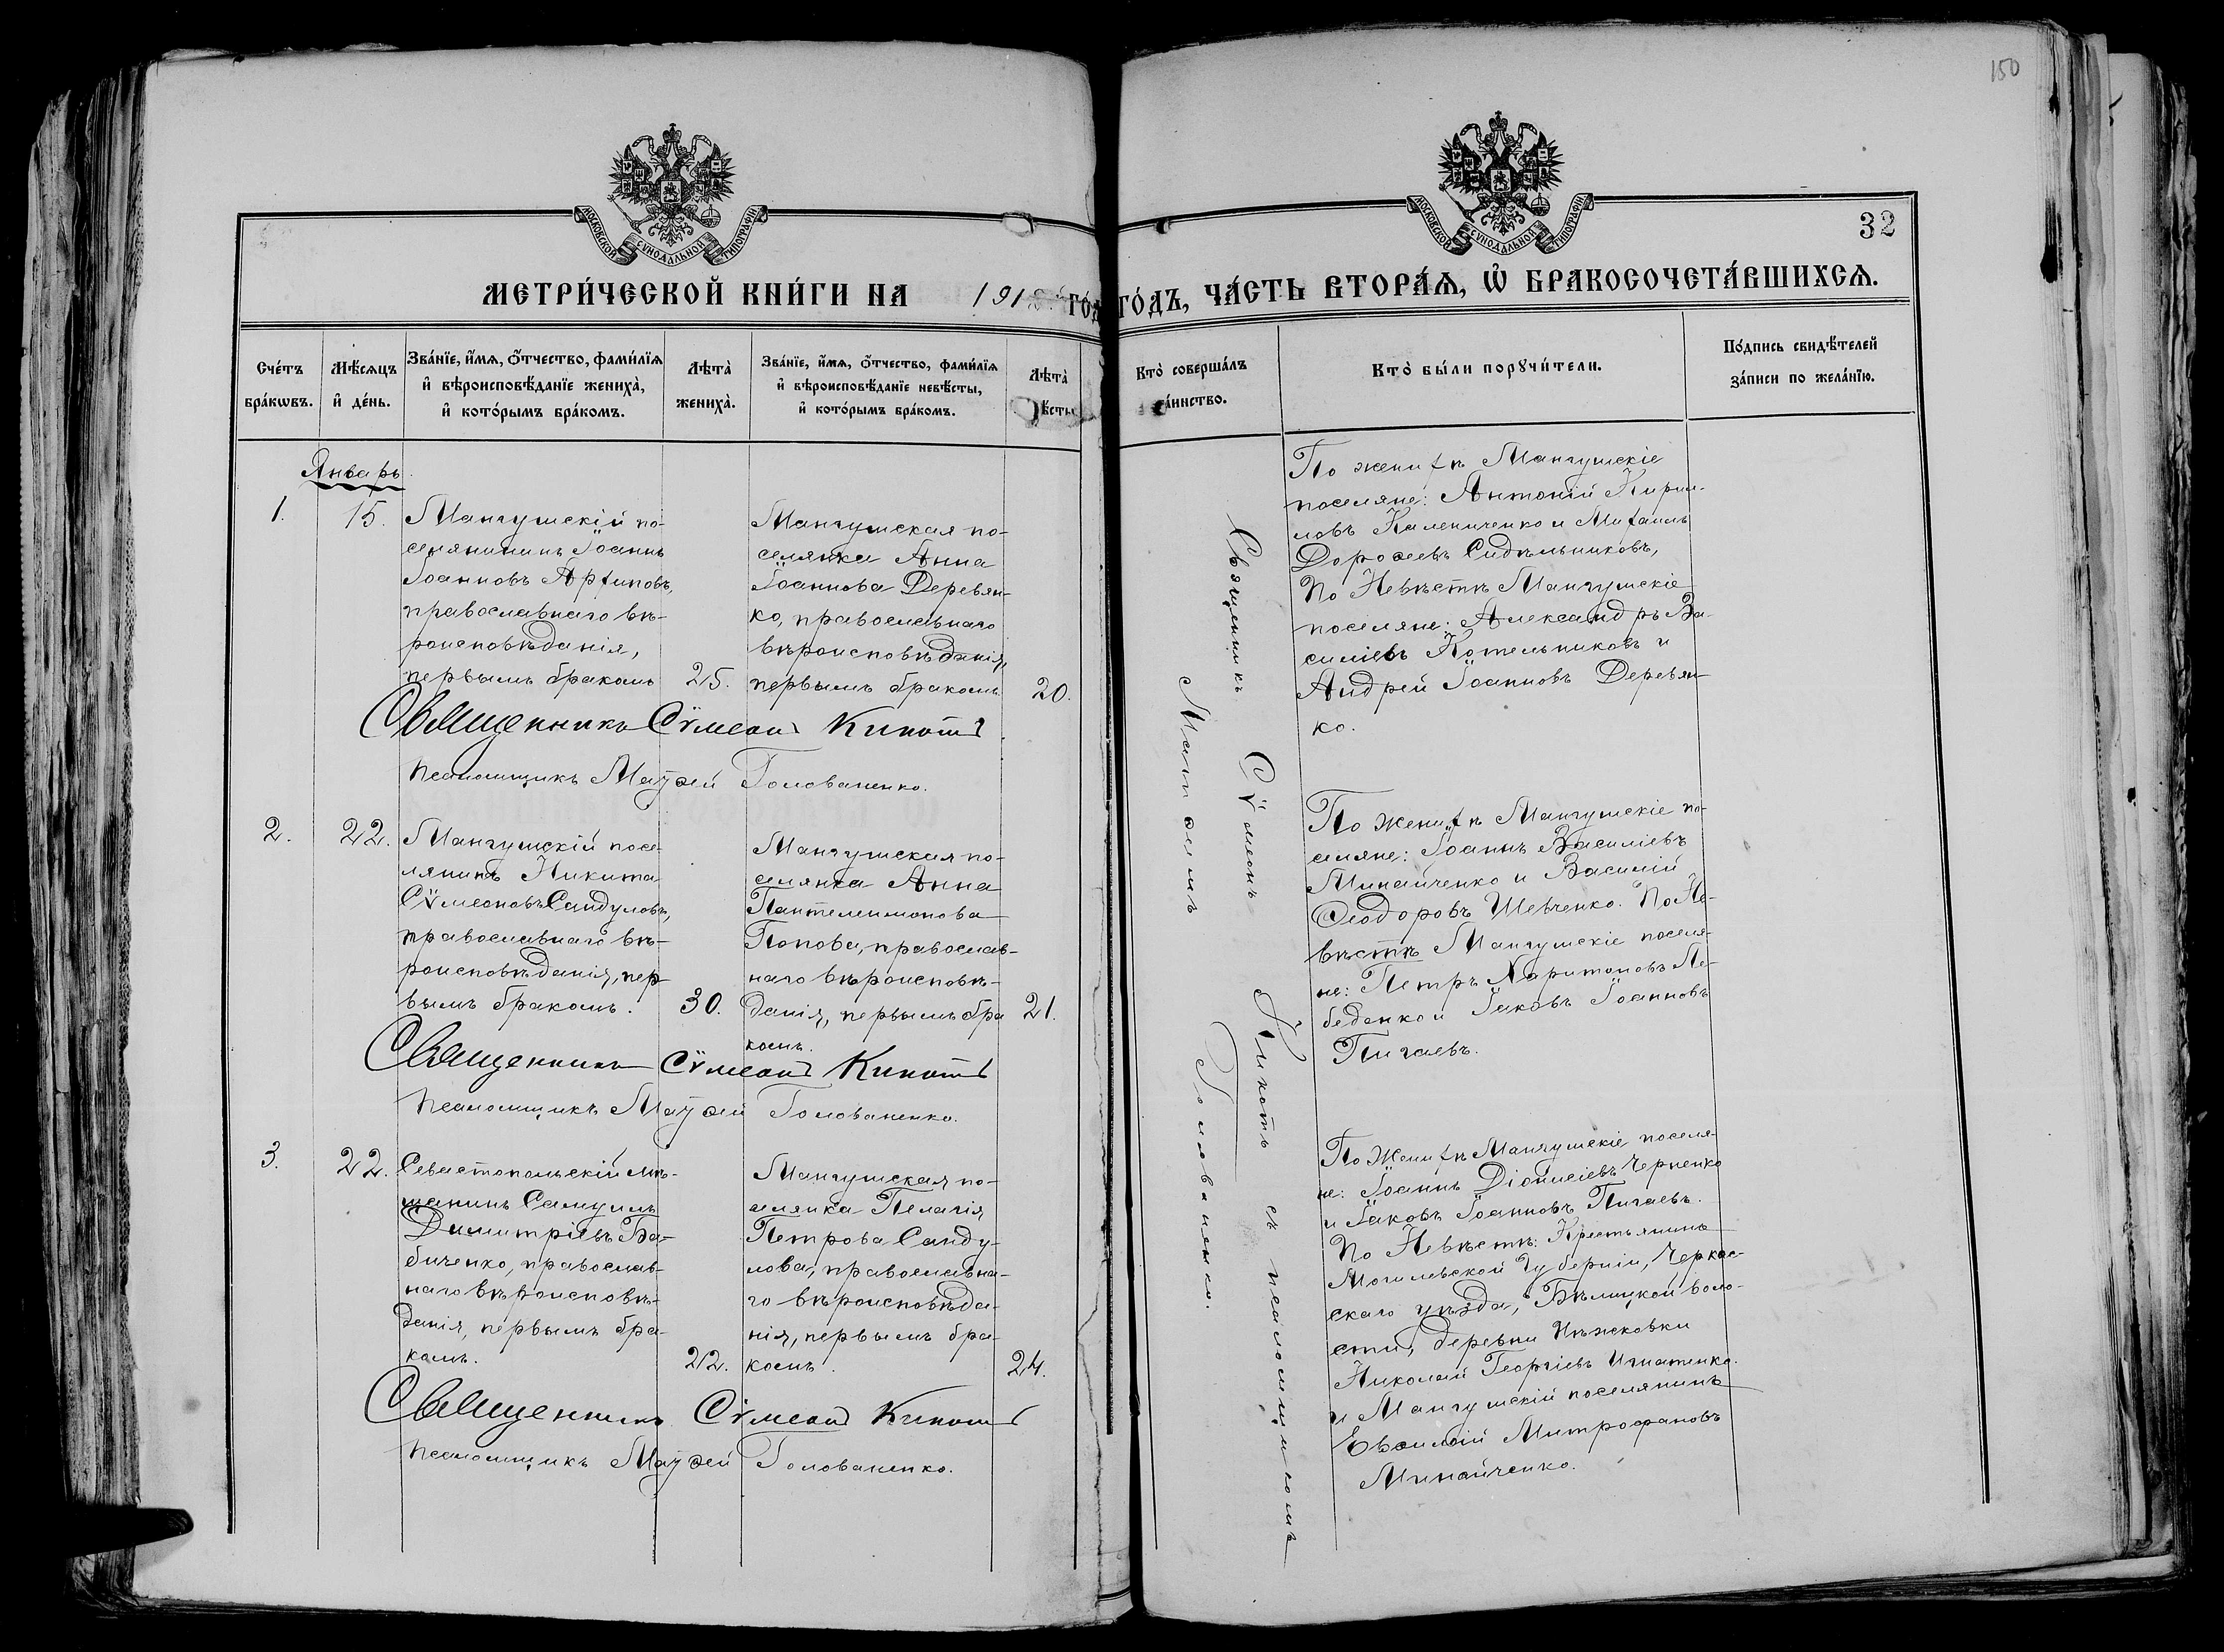 150
МОСКОВСКОЙ СУНОДАЛЬНОЙ ТИПОГРАФІИ
МОСКОВСКОЙ СУНОДАЛЬНОЙ ТИПОГРАФІИ
32
МЕТРИ́ЧЕСКОЙ КНИ́ГИ НА 191 ГО́Д
ГО́ДЪ, ЧА́СТЬ ВТОРА́Ѧ, Ѽ БРАКОСОЧЕТА́ВШИХСѦ.
Сче́тъ
бра́кѡвъ.
Мѣ́сѧцъ
и҆ де́нь.
Зва́нїе, и҆́мѧ, ѻ҆́тчество, фами́лїѧ
и҆ вѣроисповѣ́данїе жениха̀,
и҆ кото́рымъ бра́комъ.
Лѣта̀
жениха̀.
Зва́нїе, и҆́мѧ, ѻ҆́тчество, фами́лїѧ
и҆ вѣроисповѣ́данїе невѣ́сты,
и҆ кото́рымъ бра́комъ.
Лѣта̀
ѣ́сты
Кто̀ соверша́лъ
та́инство.
Кто̀ бы́ли порꙋчи́тели.
По́дпись свидѣ́телей
за́писи по жела́нїю.
Январь
1.
15.
Мангушскій по-
селянинъ Іоаннъ
Іоанновъ Архиповъ,
православнаго вѣ-
роисповѣданія,
первымъ бракомъ
25.
Мангушская по-
селянка Анна
Іоаннова Деревян-
ко, православнаго
вѣроисповѣданія,
первымъ бракомъ
20.
Священникъ Сѵмеонъ Кипотъ
псаломщикъ Матѳей Голованенко.
По женихѣ Мангушскіе
поселяне: Антоній Кирил-
ловъ Калениченко и Михаилъ
Дороѳеевъ Сидѣльниковъ,
По Невѣстѣ Мангушскіе
поселяне: Александръ Ва-
силіевъ Котельниковъ и
Андрей Іоанновъ Деревян-
ко.
Священникъ Сѵмеонъ Кипотъ съ псаломщикомъ
Матѳеемъ Голованенко.
2.
22.
Мангушскій посе-
лянинъ Никита
Сѵмеоновъ Сандуловъ,
православнаго вѣ-
роисповѣданія, пер
вымъ бракомъ.
30.
Мангушская по-
селянка Анна
Пантелеимонова
Попова, православ-
наго вѣроисповѣ-
данія, первымъ бра
комъ.
21.
Священникъ Сѵмеонъ Кипотъ
псаломщикъ Матѳей Голованенко.
По Женихѣ Мангушскіе по-
селяне: Іоаннъ Василіевъ
Минайченко и Василій
Ѳеодоровъ Шевченко. По Не-
вѣстѣ Мангушскіе поселя-
не: Петръ Харитоновъ Ле-
беденко и Іаковъ Іоанновъ
Пигаевъ.
3.
22.
Севастопольскій мѣ-
щанинъ Самуилъ
Димитріевъ Ба-
биченко, православ-
наго вѣроисповѣ-
данія, первымъ бра-
комъ.
22.
Мангушская по-
селянка Пелагія
Петрова Санду-
лова, православна-
го вѣроисповѣда-
нія, первымъ бра-
комъ.
24.
Священникъ Сѵмеонъ Кипотъ
псаломщикъ Матѳей Голованенко.
По Женихѣ Мангушскіе поселя-
не: Іоаннъ Діонисіевъ Черненко
и Іаковъ Іоанновъ Пигаевъ.
По Невѣстѣ: Крестьянинъ
Могилевской Губерніи, Черкас-
скаго уѣзда, Бѣлицкой воло-
сти, деревни
Николай Георгіевъ Игнатенко
и Мангушскій поселянинъ
Евѳимій Митрофановъ
Минайченко.